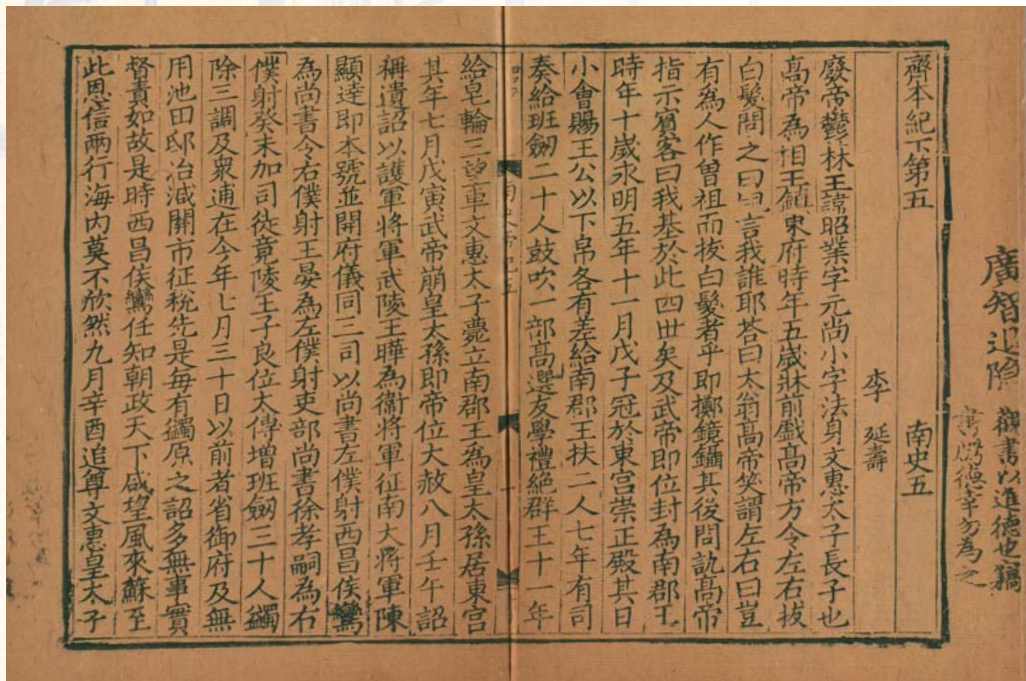 廣智退隐 觀書以進德也竊
書愕德幸勿為之
齊本紀下第五 南史五
李 延壽
廢帝鬱林王諱昭業字元尚小字法身文惠太子長子也
高帝為相王鎮東府時年五歲牀前戲高帝方令左右拔
白髮問之曰兒言我誰耶荅曰太翁高帝笑謂左右曰豈
有為人作曽祖而拔白髮者乎即擲鏡鑷其後問訊高帝
指示賓客曰我基於此四世矣及武帝即位封為南郡王
時年十歲永明五年十一月戊子冠於東宫崇正殿其日
小會賜王公以下帛各有差給南郡王扶二人七年有司
奏給班劒二十人鼓吹一部高選友學禮絕群王十一年
給皂輪三望車文惠太子薨立南郡王為皇太孫居東宫
其年七月戊寅武帝崩皇太孫即帝位大赦八月壬午詔
稱遺詔以護軍將軍武陵王曄為衞將軍征南大將軍陳
顯達即本號並開府儀同三司以尚書左僕射西昌侯鸞
為尚書令右僕射王晏為左僕射吏部尚書徐孝嗣為右
僕射癸未加司徒竟陵王子良位太傅增班劒三十人蠲
除三調及衆逋在今年七月三十日以前者省御府及無
用池田邸冶减關市征稅先是每有蠲原之詔多無事實
督責如故是時西昌侯鸞任知朝政天下咸望風來蘇至
此恩信兩行海内莫不欣然九月辛酉追尊文惠皇太子